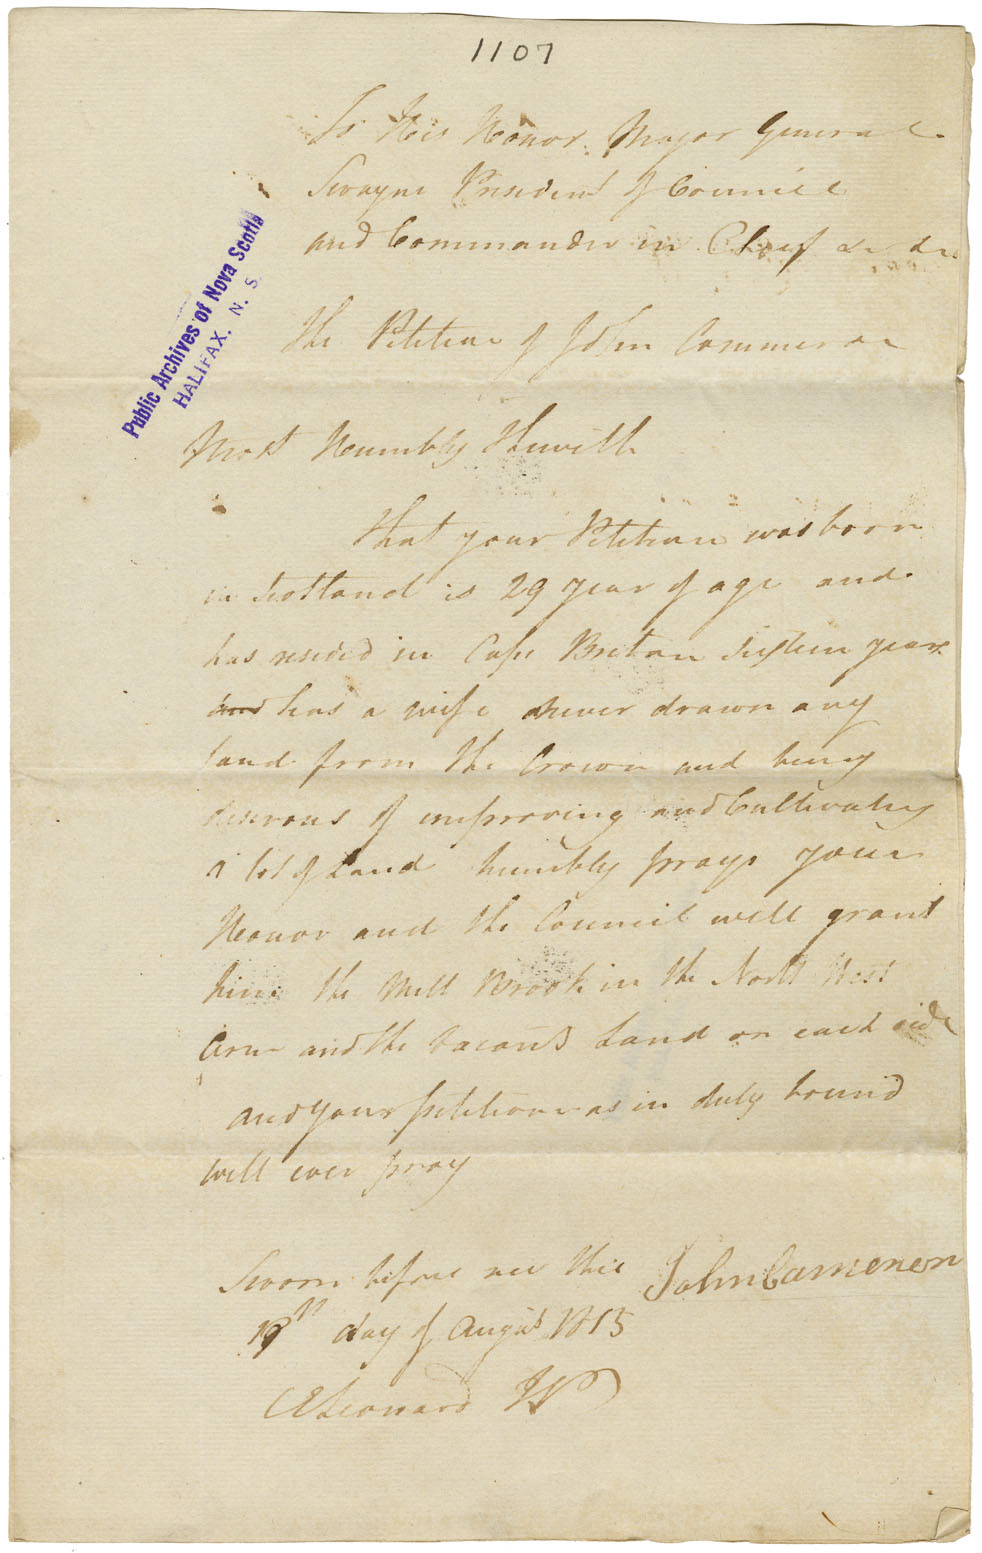 1107
To His Honor Major General
Swayne President of Council
and Commander in Chief &c &c
Public Archives of Nova Scotia
HALIFAX, N. S.
The Petition of John Cammeron
Most Humbly Sheweth
That your Petitioner was born
in Scotland is 29 year of age and
has resided in Cape Breton sixteen years
and has a wife never drawn any
land from the Crown and being
desirous of improving and Cultivating
a lot of Land humbly prays your
Honor and the Council will grant
him the Mill Brook in the North West
Arm and the vacant Land on each side
and your petitioner as in duty bound
will ever pray
Sworn before me this
John Cameron
19th day of August 1815
Leonard JP